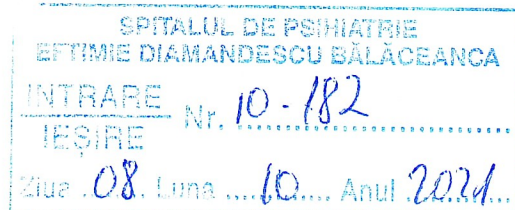 SPITALUL DE PSIHIATRIE
EFTIMIE DIAMANDESCU BĂLĂCEANCA
INTRARE
IEȘIRE
Nr. 10-182
Ziua 08. Luna ....10.... Anul .2021.